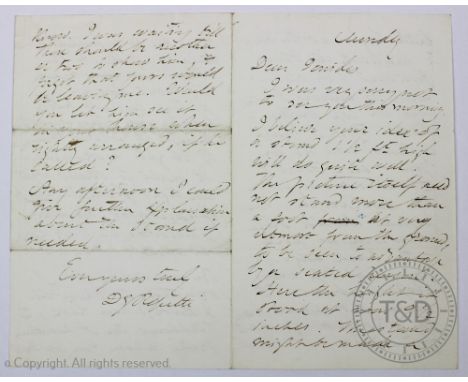 Sunday
Dear
I was very sorry not
to see you this morning
I believe your idea of
a stand 1½ ft high
will do quite well.
The picture itself need
not stand more than
a foot at very
utmost from the ground,
to be seen to advantage
by a seated
Here the
stood at
inches. The stand
might be made a
I was waiting till
there should be another
or two to show him, &
that yours would
be leaving me. Would
you let him see it
at your house when
rightly arranged, if he
called?
Any afternoon I could
give further explanation
about the stand if
needed.
Ever yours truly
D G Rossetti
T&D
© Copyright. All rights reserved.